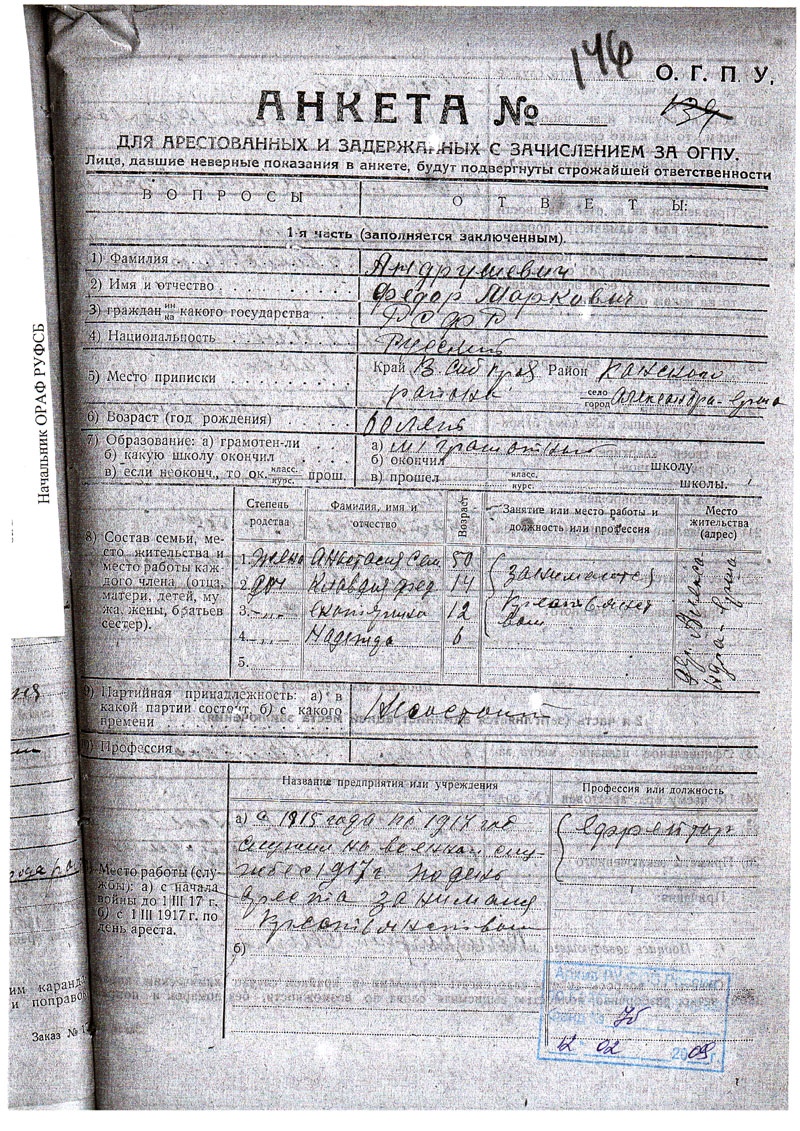 146
О. Г. П. У.
АНКЕТА №
139
ДЛЯ АРЕСТОВАННЫХ И ЗАДЕРЖАННЫХ С ЗАЧИСЛЕНИЕМ ЗА ОГПУ.
Лица, давшие неверные показания в анкете, будут подвергнуты строжайшей ответственности
ВОПРОСЫ ОТВЕТЫ:
1-я часть (заполняется заключенным).
1) Фамилия Андрушевич
2) Имя и отчество Федор Маркович
3) граждан ин/ка какого государства РСФСР
4) Национальность Русский
5) Место приписки Край В. Сиб край Район Канского
района село/город Александра-Ерша
6) Возраст (год рождения) 60 лет
7) Образование: а) грамотен-ли а) м/грамотный
б) какую школу окончил б) окончил школу
в) если неоконч., то ок. класс./курс. прош. в) прошел класс./курс. школы.
8) Состав семьи, место жительства и место работы каждого члена (отца, матери, детей, мужа, жены, братьев сестер).
Степень родства Фамилия, имя и отчество Возраст Занятие или место работы и должность или профессия Место жительства (адрес)
1. жена Анастасия Сем 50 занимаются
2. доч Клавдия Фед 14 крестьянст
3. -„- Екатерина 12 вом
4. -„- Надежда 6
5.
дер. Алекса-
ндра-Ерша
9) Партийная принадлежность: а) в какой партии состоит, б) с какого времени
) Профессия
Названия предприятия или учреждения Профессия или должность
Место работы (службы): а) с начала войны до 1 III 17 г. б) с 1 III 1917 г. по день ареста.
а) с 1915 года по 1917 год Ефрейтор
служил на военной слу
жбе с 1917 г. по день
ареста занимался
крестьянством
б)
75
12 02 2009
Начальник ОРАФ РУФСБ
им каранда
и поправо
Заказ № 1